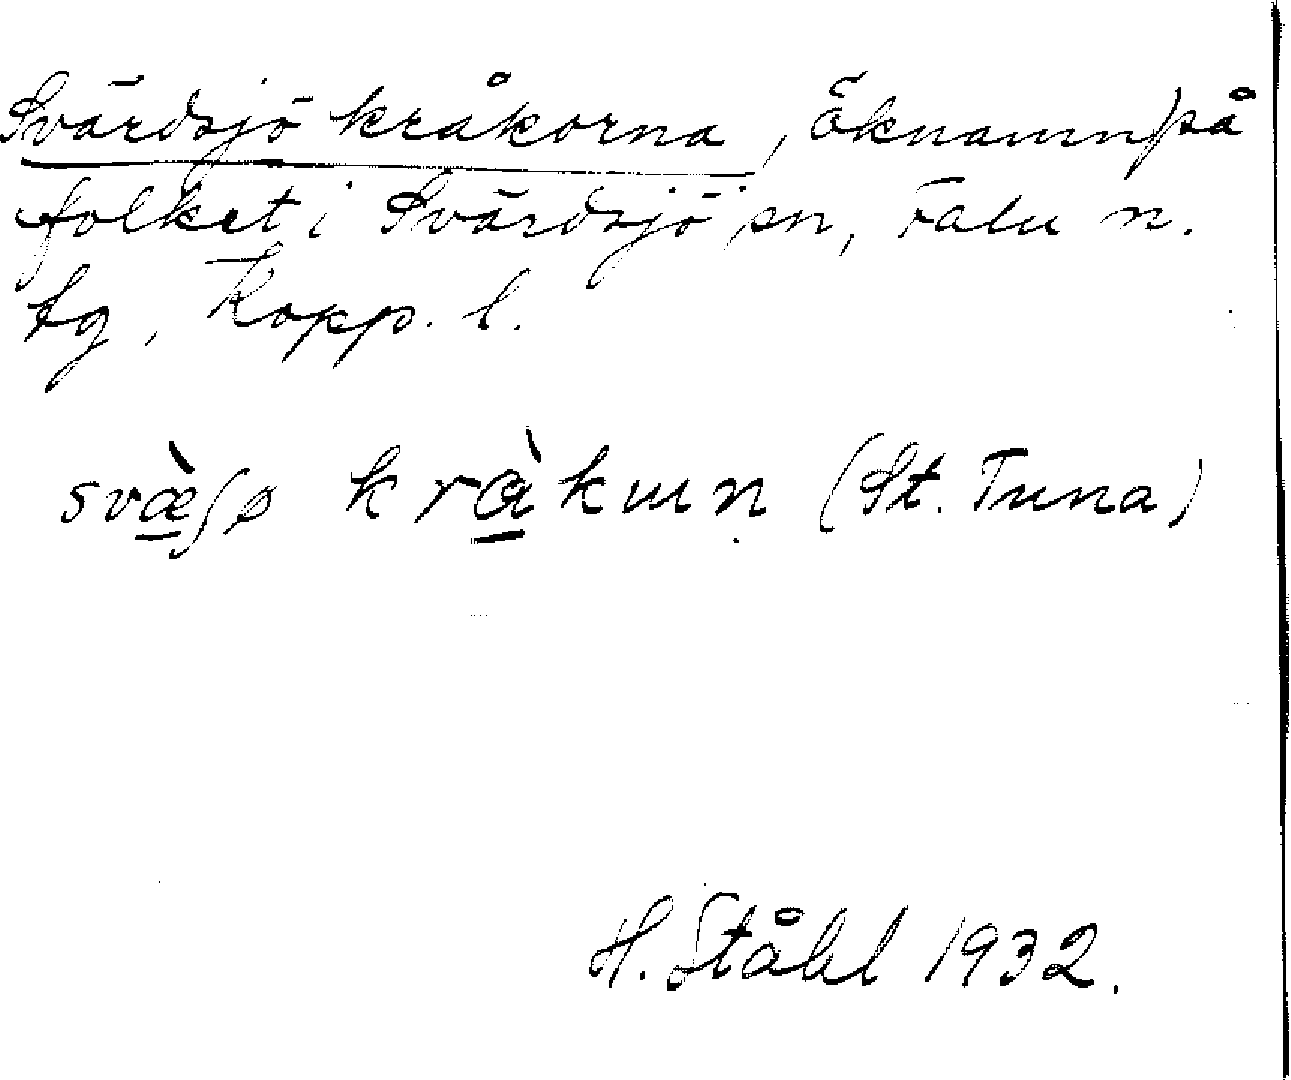 Svärdsjö kråkorna, Öknamn på
folket i Svärdsjö sn, Falu n.
tg, Kopp. l.
svæ̀ʃø krɑ̀kuɩṇ (St. Tuna)
H. Ståhl 1932.